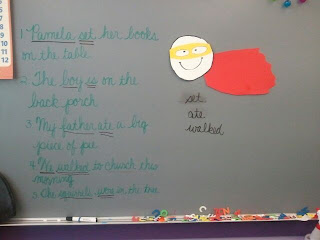 1. Pamela set her books
on the table
2. The boy is on the
back porch
3. My father ate a big
piece of pie
4. We walked to church this
morning
5. The squirrels were in the tree
set
ate
walked